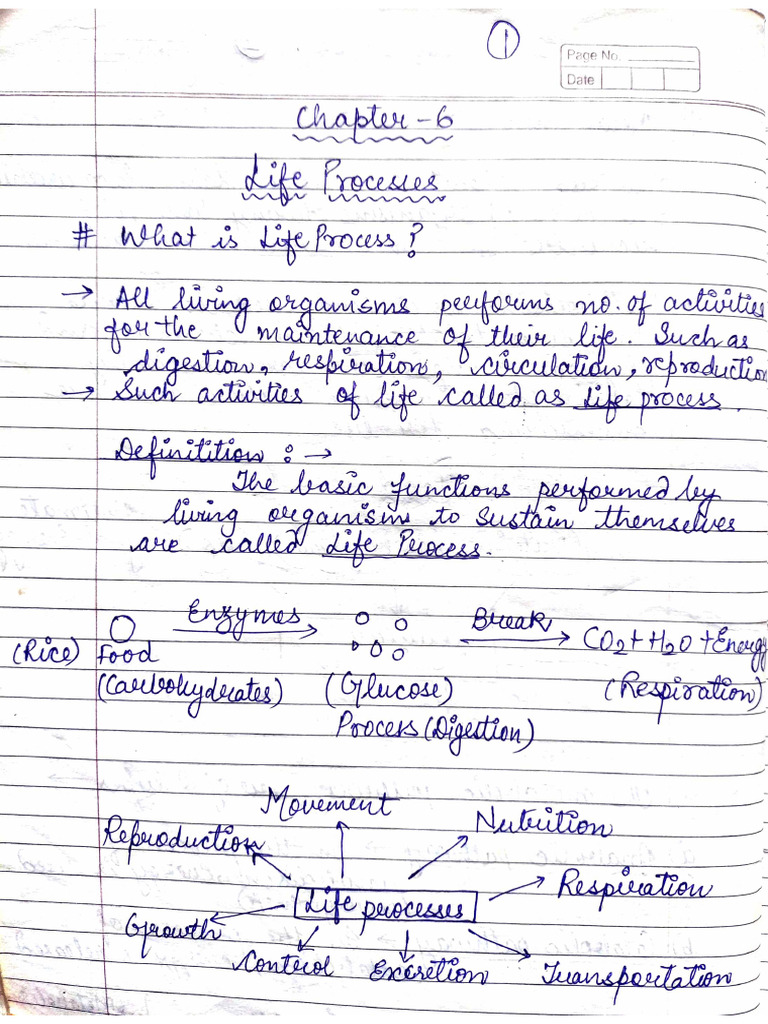 1
Page No.
Date
Chapter - 6
Life Processes
# What is Life Process?
→ All living organisms peerforms no. of activities
for the maintenance of their life. Such as
digestion, respiration, circulation, reproduction
→ Such activities of life called as Life process.
Definitition : →
The basic functions performed by
living organism to sustain themselves
are called Life Process.
Enzymes Break
CO2 + H2O + Energy
(Rice) Food
(Carbohydrates) (Glucose) (Respiration)
Process (Digestion)
Movement
Nutrition
Reproduction
Respiration
Life processes
Growth
Control Excretion Transportation